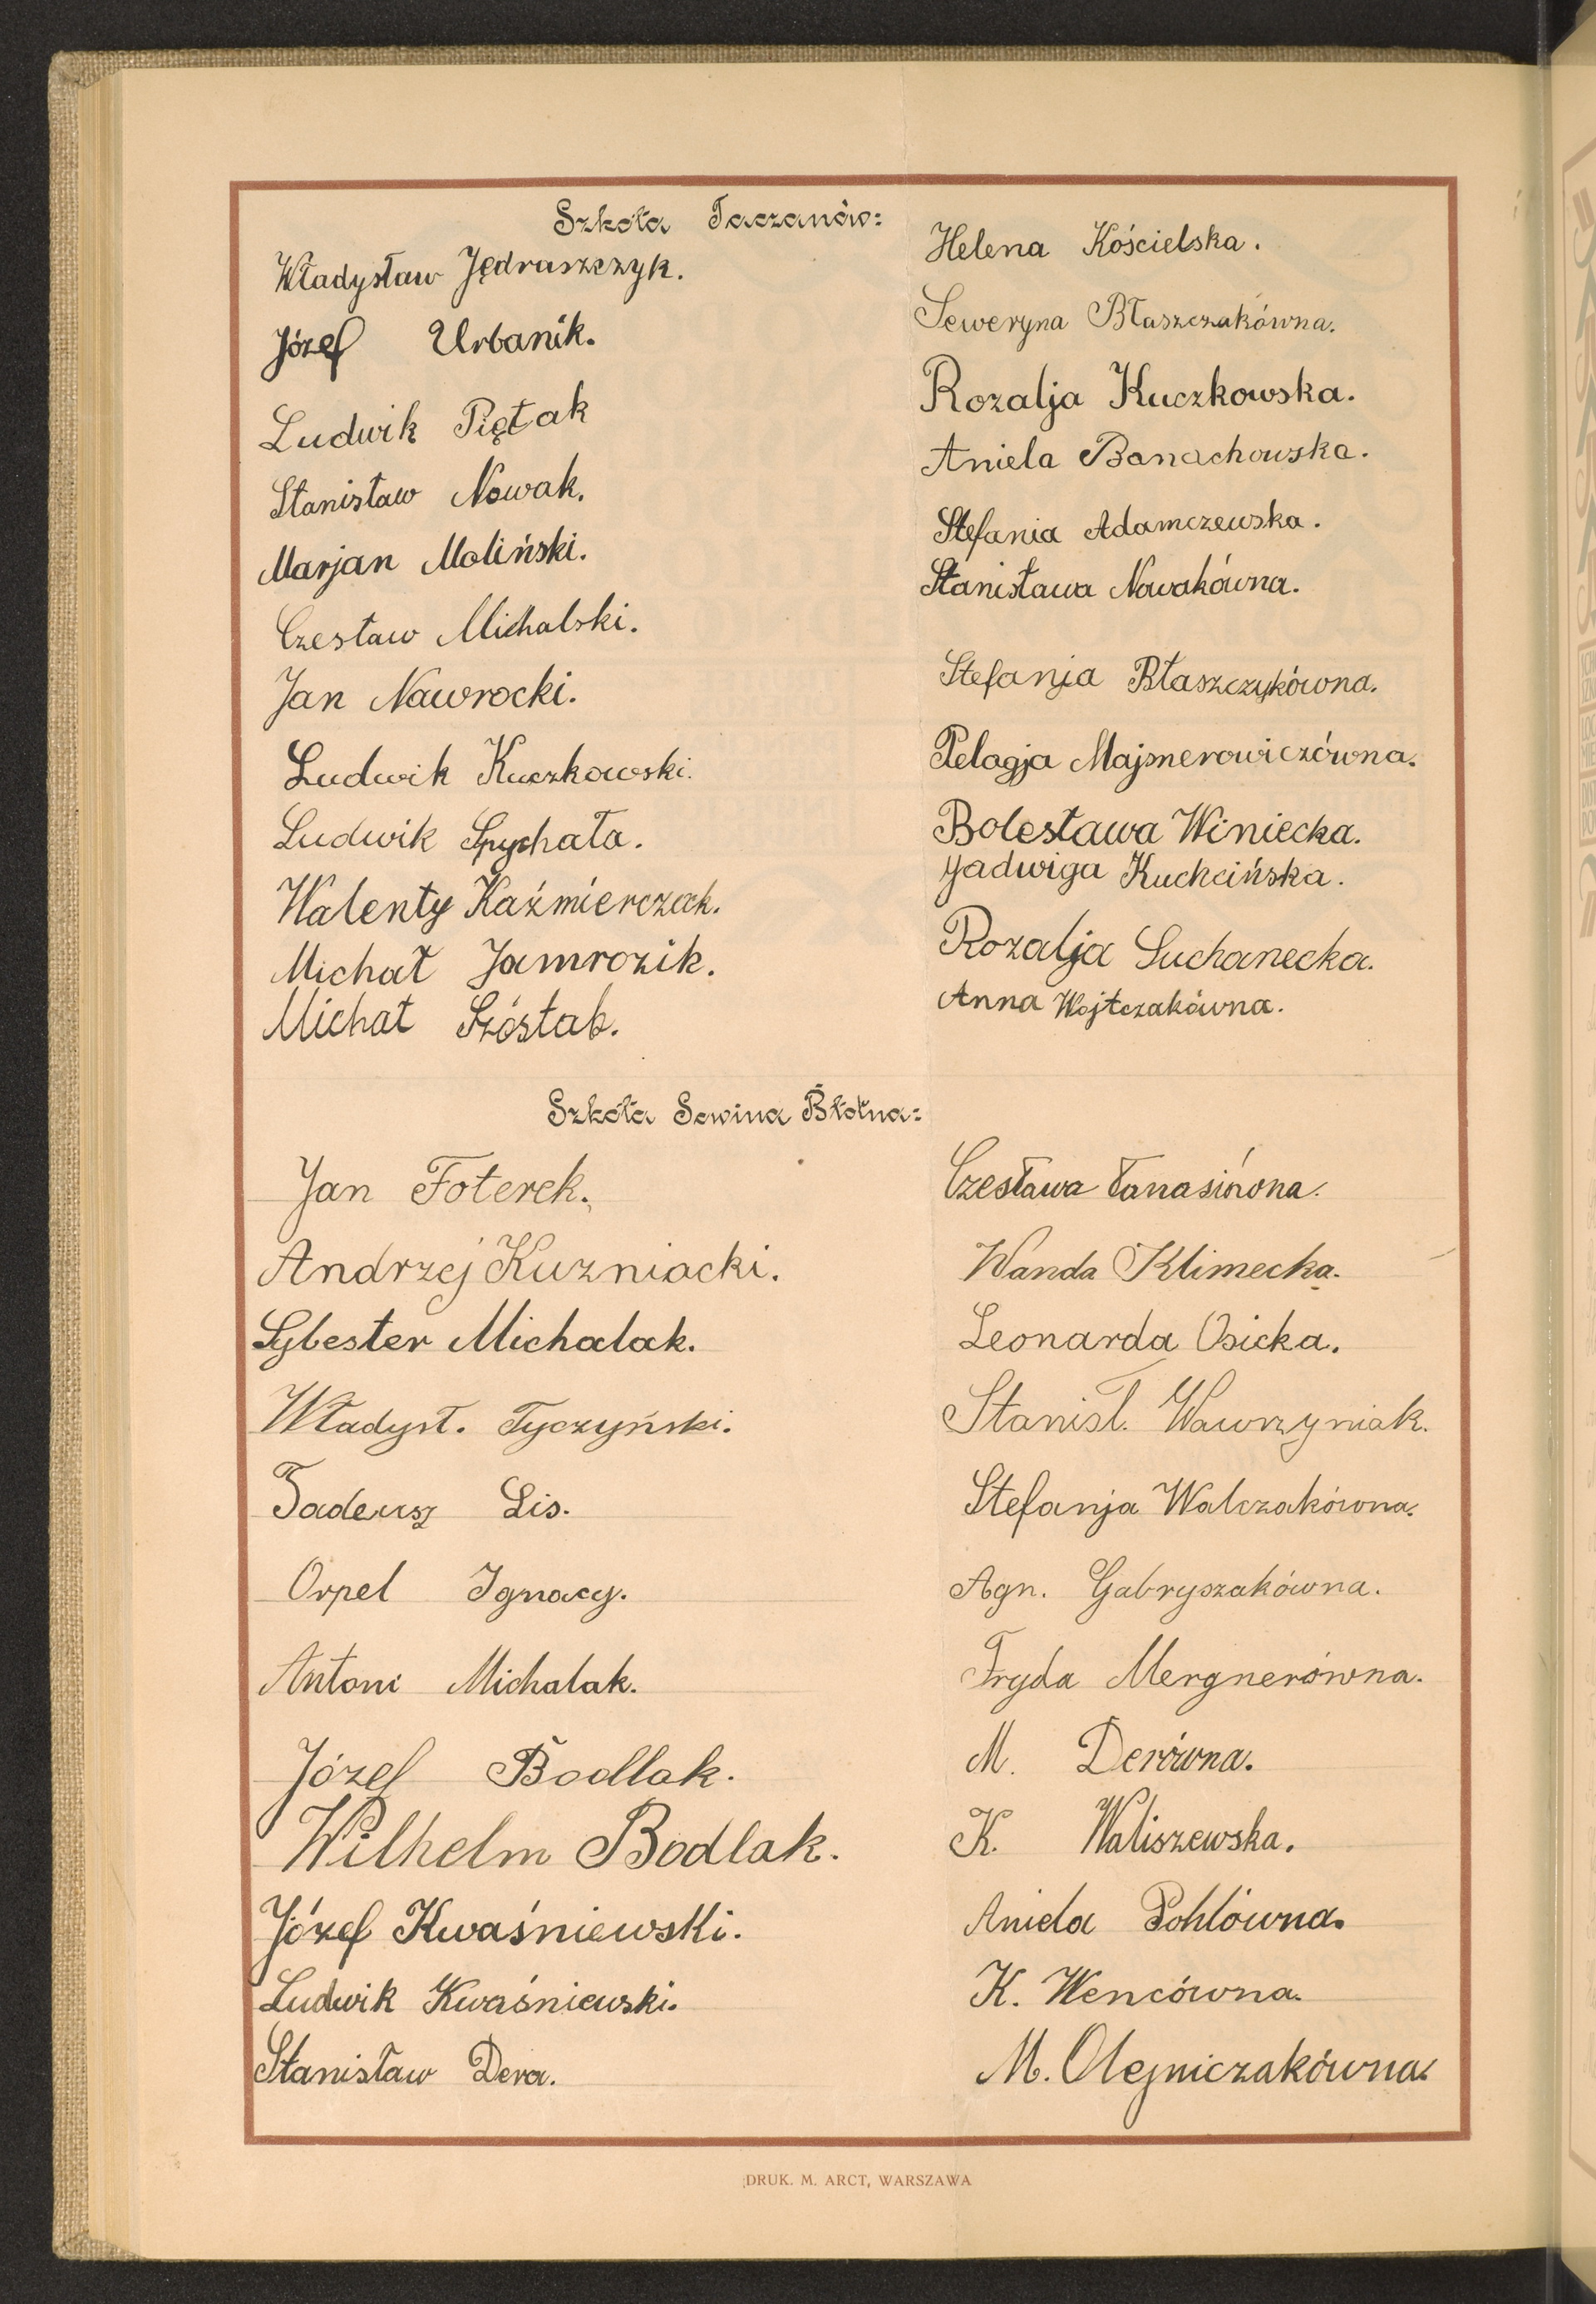 Szkoła Taczanów:
Władysław Jędraszczyk.
Józef Urbanik.
Ludwik Piętak
Stanisław Nowak.
Marjan Moliński.
Czesław Michalski.
Jan Nawrocki.
Ludwik Kuczkowski.
Ludwik Spychała.
Walenty Kaźmierczak.
Michał Jamrozik.
Michał Szóstak.
Helena Kościelska.
Seweryna Błaszczakówna.
Rozalja Kuczkowska.
Aniela Banachowska.
Stefania Adamczewska.
Stanisława Nowakówna.
Stefanja Błaszczykówna.
Pelagja Majsnerowiczówna.
Bolesława Winiecka.
Jadwiga Kuchcińska.
Rozalja Suchanecka.
Anna Wojtczakówna.
Szkoła Sowina Błotna:
Jan Foterek.
Andrzej Kuzniacki.
Sylbester Michalak.
Władysł. Tyczyński.
Tadeusz Lis.
Orpel Ignacy.
Antoni Michalak.
Józef Bodlak.
Wilhelm Bodlak.
Józef Kwaśniewski.
Ludwik Kwaśniewski.
Stanisław Dera.
Czesława
Wanda Klimecka.
Leonarda Osicka.
Stanisł. Wawrzyniak.
Stefanja Walczakówna.
Agn. Gabryszakówna.
Fryda Mergnerówna.
M. Derówna.
K. Waliszewska.
Aniela Pohlówna.
K. Wencówna.
M. Olejniczakówna.
DRUK. M. ARCT, WARSZAWA